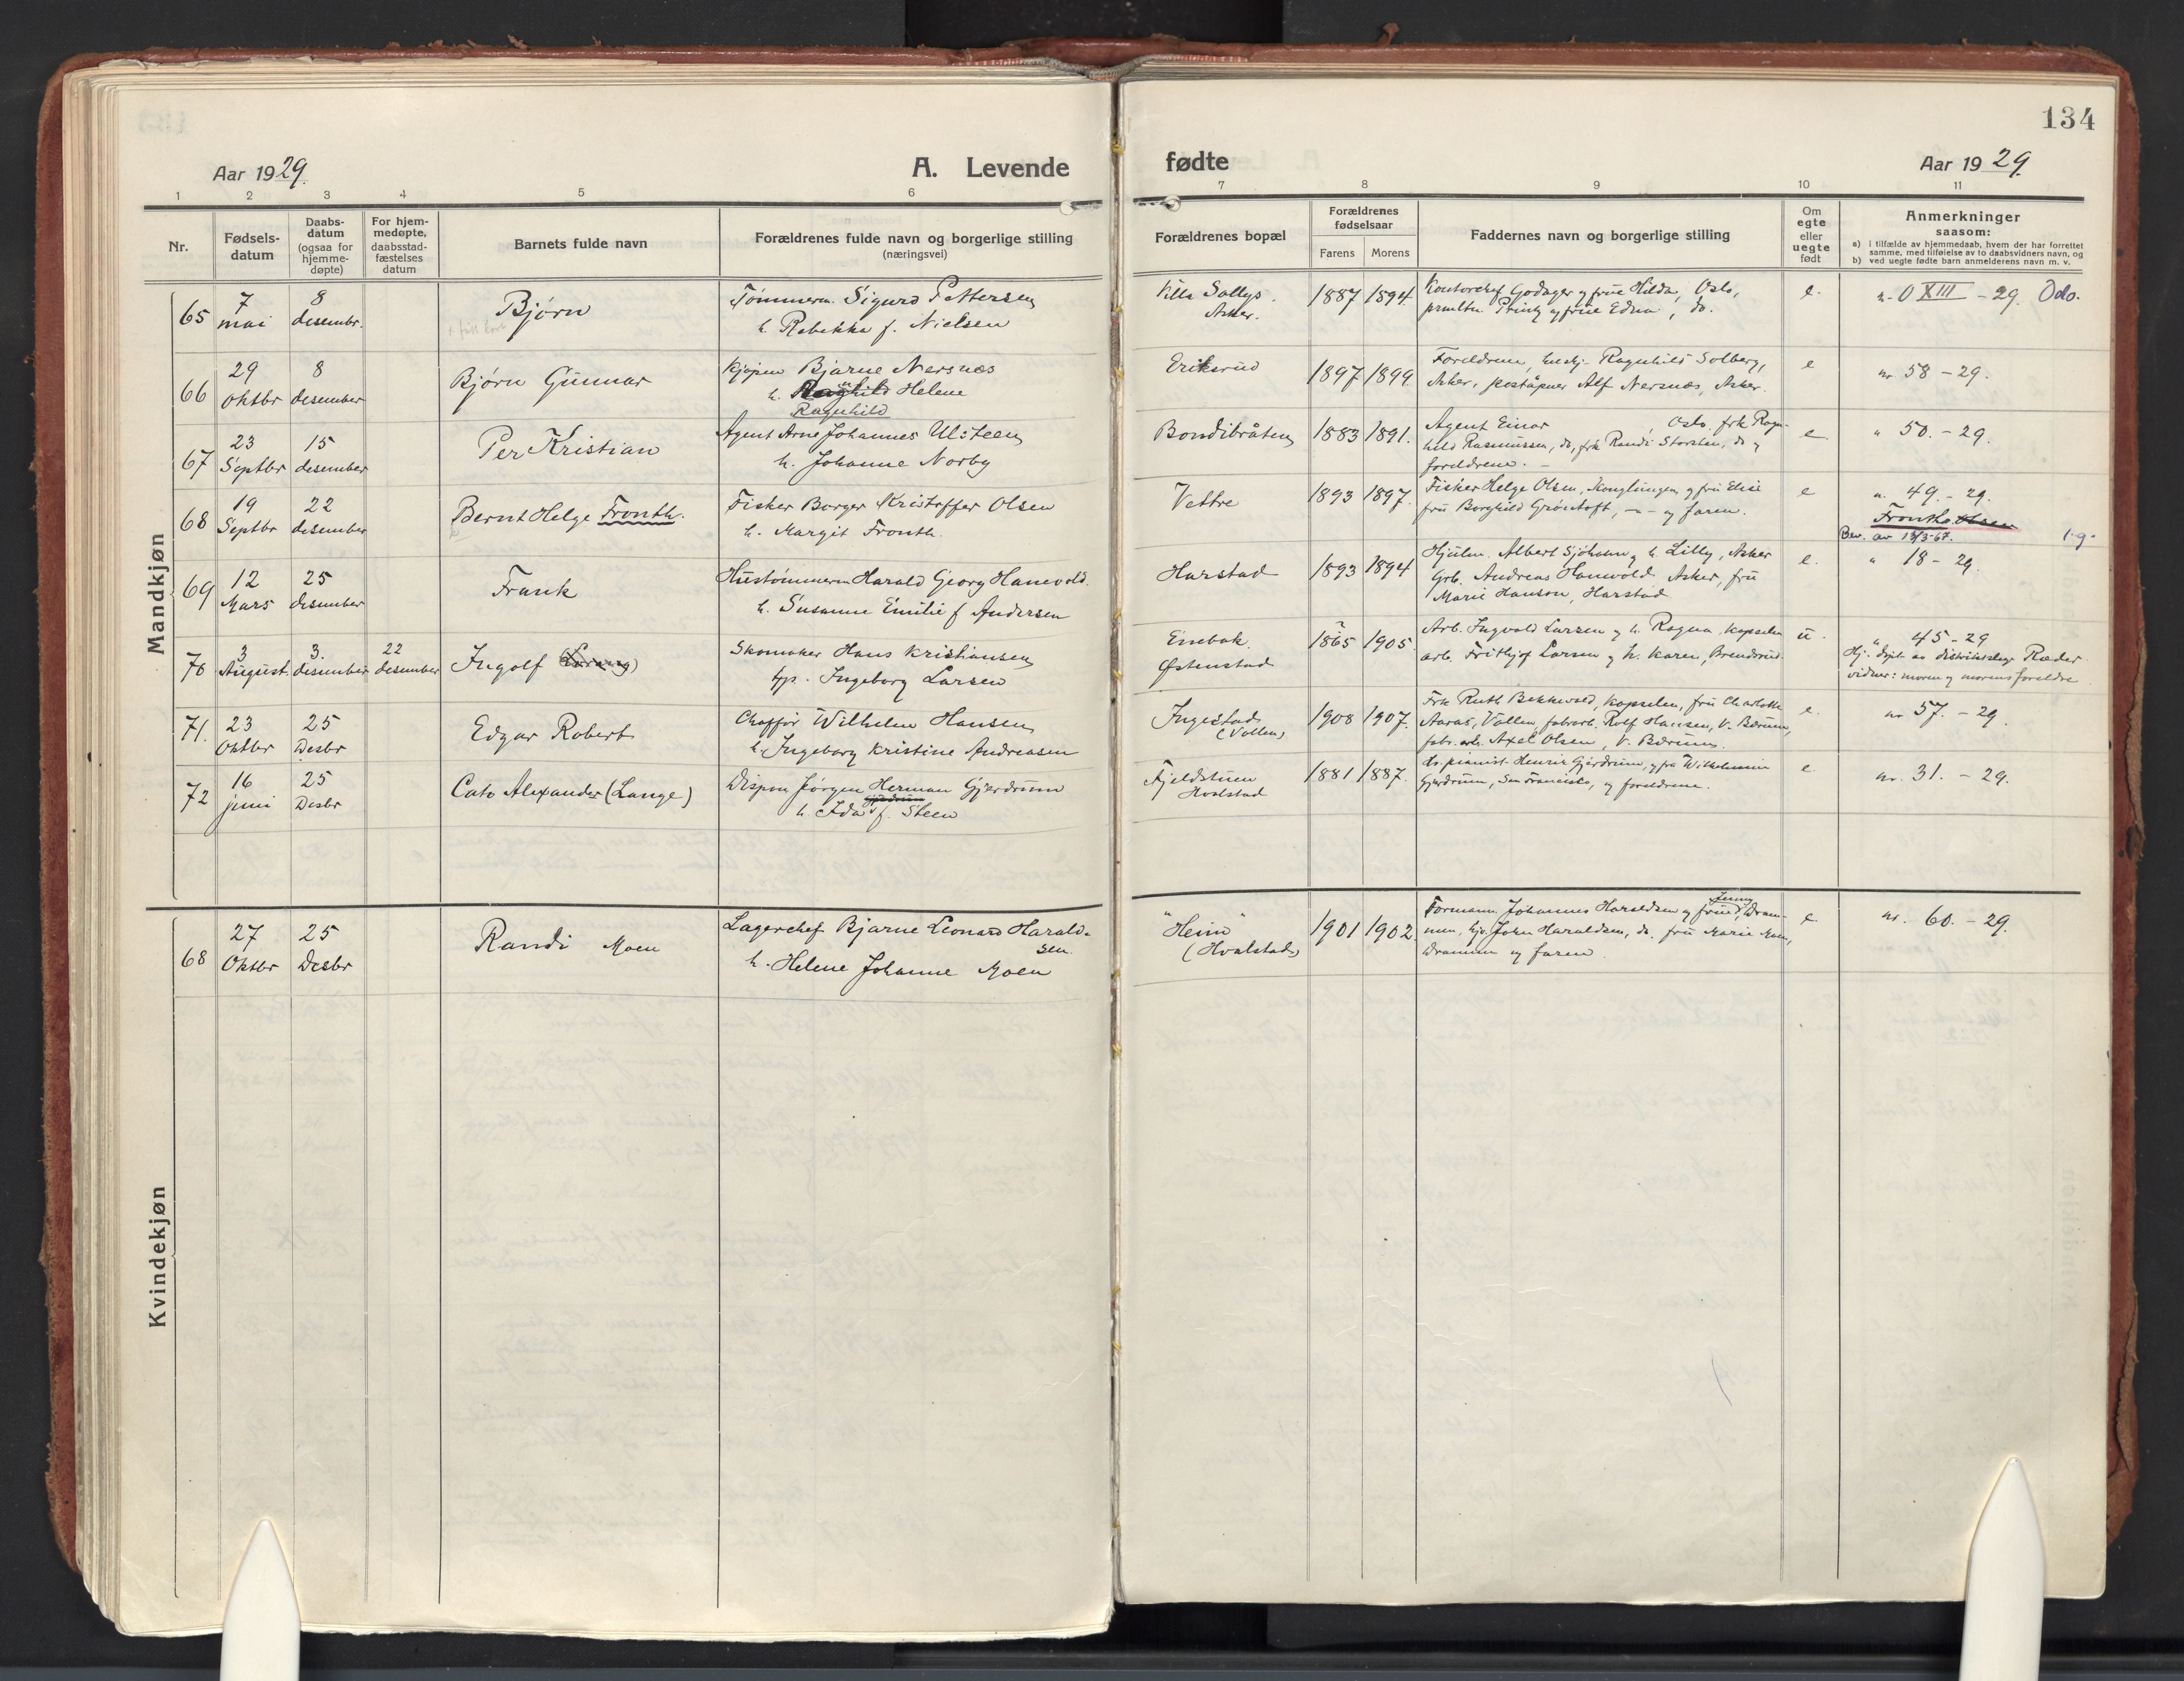 134
Aar 1929.
A. Levende
fødte
Aar 1929.
1 2 3 4 5 6 7 8 9 10 11
Nr.
Fødsels-
datum
Daabs-
datum
(ogsaa for
hjemme-
døpte)
For hjem-
medøpte,
daabsstad-
fæstelses
datum
Barnets fulde navn
Forældrenes fulde navn og borgerlige stilling
(næringsvei)
Forældrenes bopæl
Forældrenes
fødselsaar
Farens Morens
Faddernes navn og borgerlige stilling
Om
egte
eller
uegte
født
Anmerkninger
saasom:
a) i tilfælde av hjemmedaab, hvem der har forrettet
samme, med tilføielse av to daabsvidners navn, og
b) ved uegte fødte barn anmelderens navn m. v.
Mandkjøn
65
7
mai
8
desembr.
Bjørn
Tømmerm. Sigurd Pettersen
h. Rebekka f. Nielsen
Villa Sollys.
Asker.
1887 1894
Kontorchef Godager og frue Hilda, Oslo,
og frue Edna, do.
e.
n. O XIII - 29. Oslo.
66
29
Oktbr
8
desember
Bjørn Gunnar
Kjøpm Bjarne Nersnæs
h. Ragnhild Helene
Ragnhild
Eriksrud
1897 1899
Foreldrene, Ragnhild Solberg,
Asker, poståpner Alf Nersnæs, Asker.
e
nr 58 - 29.
67
23
Septbr
15
desember
Per Kristian
Agent Arne Johannes Ulsteen
h. Johanne Norby
Bondibråten
1883 1891.
Agent Einar , Oslo. frk Ragn-
hild Rasmussen, do, frk Randi Storsten, do og
foreldrene. -
e.
" 50. - 29.
68
19
Septbr
22
desember
Bernt Helge Fronth.
Fisker Borger Kristoffer Olsen
h. Margit Fronth.
Vettre
1893 1897.
Fisker Helge Olsen, Konglungen og fru Elise
fru Borghild Grøntoft, - " - og faren.
e
n. 49. - 29.
Fronth Olsen
Bev. av 13/3-67.
69
12
Mars
25
desember
Frank
Hustømmerm Harald Georg Hanevold.
h. Susanne Emilie f Andersen
Harstad
1893 1894
Hjulm. Albert Sjøholm og h. Lilly, Asker
Grb. Andreas Hanevold Asker, fru
Marie Hanson, Harstad
e.
" 18 - 29.
70
3
August.
3.
desember
22
desember
Ingolf
Skomaker Hans Kristiansen
tjp. Ingeborg Larsen
Enebak
Østenstad
1865 1905.
Arb. Ingvald Larsen og h. Ragna Kopselen
arb. Frithjof Larsen og h. Karen, Brendsrud.
u.
" 45 - 29
Hj. døpt av distriktslæge Ræder.
vidner: moren og morens foreldre
71.
23
Oktbr
25
Desbr
Edgar Robert
Chaffør Wilhelm Hansen
h. Ingeborg Kristine Andreasen
Ingestad
(Vollen)
1908 1907.
Frk Ruth Bekkevold, Kopselen, fru Charlotte
Aaraas, Vollen, fabrarb. Rolf Hansen, V. Bærum,
fabr. arb. Axel Olsen, V. Bærum.
e.
nr 57. - 29.
72
16
juni
25
Desbr
Cato Alexander (Lange)
Dispon Jørgen Herman Gjerdrum
h. Ida f. Steen
Fjeldstuen
Hvalstad
1881 1887.
pianist Henrik Gjerdrum, og fru Wilhelmine
Gjerdrum, San Francisco, og foreldrene.
e
nr. 31. - 29.
Kvindekjøn
68
27
Oktbr
25
Desbr
Randi Moen
Lagerchef Bjarne Leonard Harald-
sen
h. Helene Johanne Moen
"Heim"
(Hvalstad)
1901 1902
Formann Johannes Haraldsen og frue Jenny, Dram-
men, John Haraldsen, do. fru Marie Moen,
Drammen og faren.
e.
nr. 60. - 29.